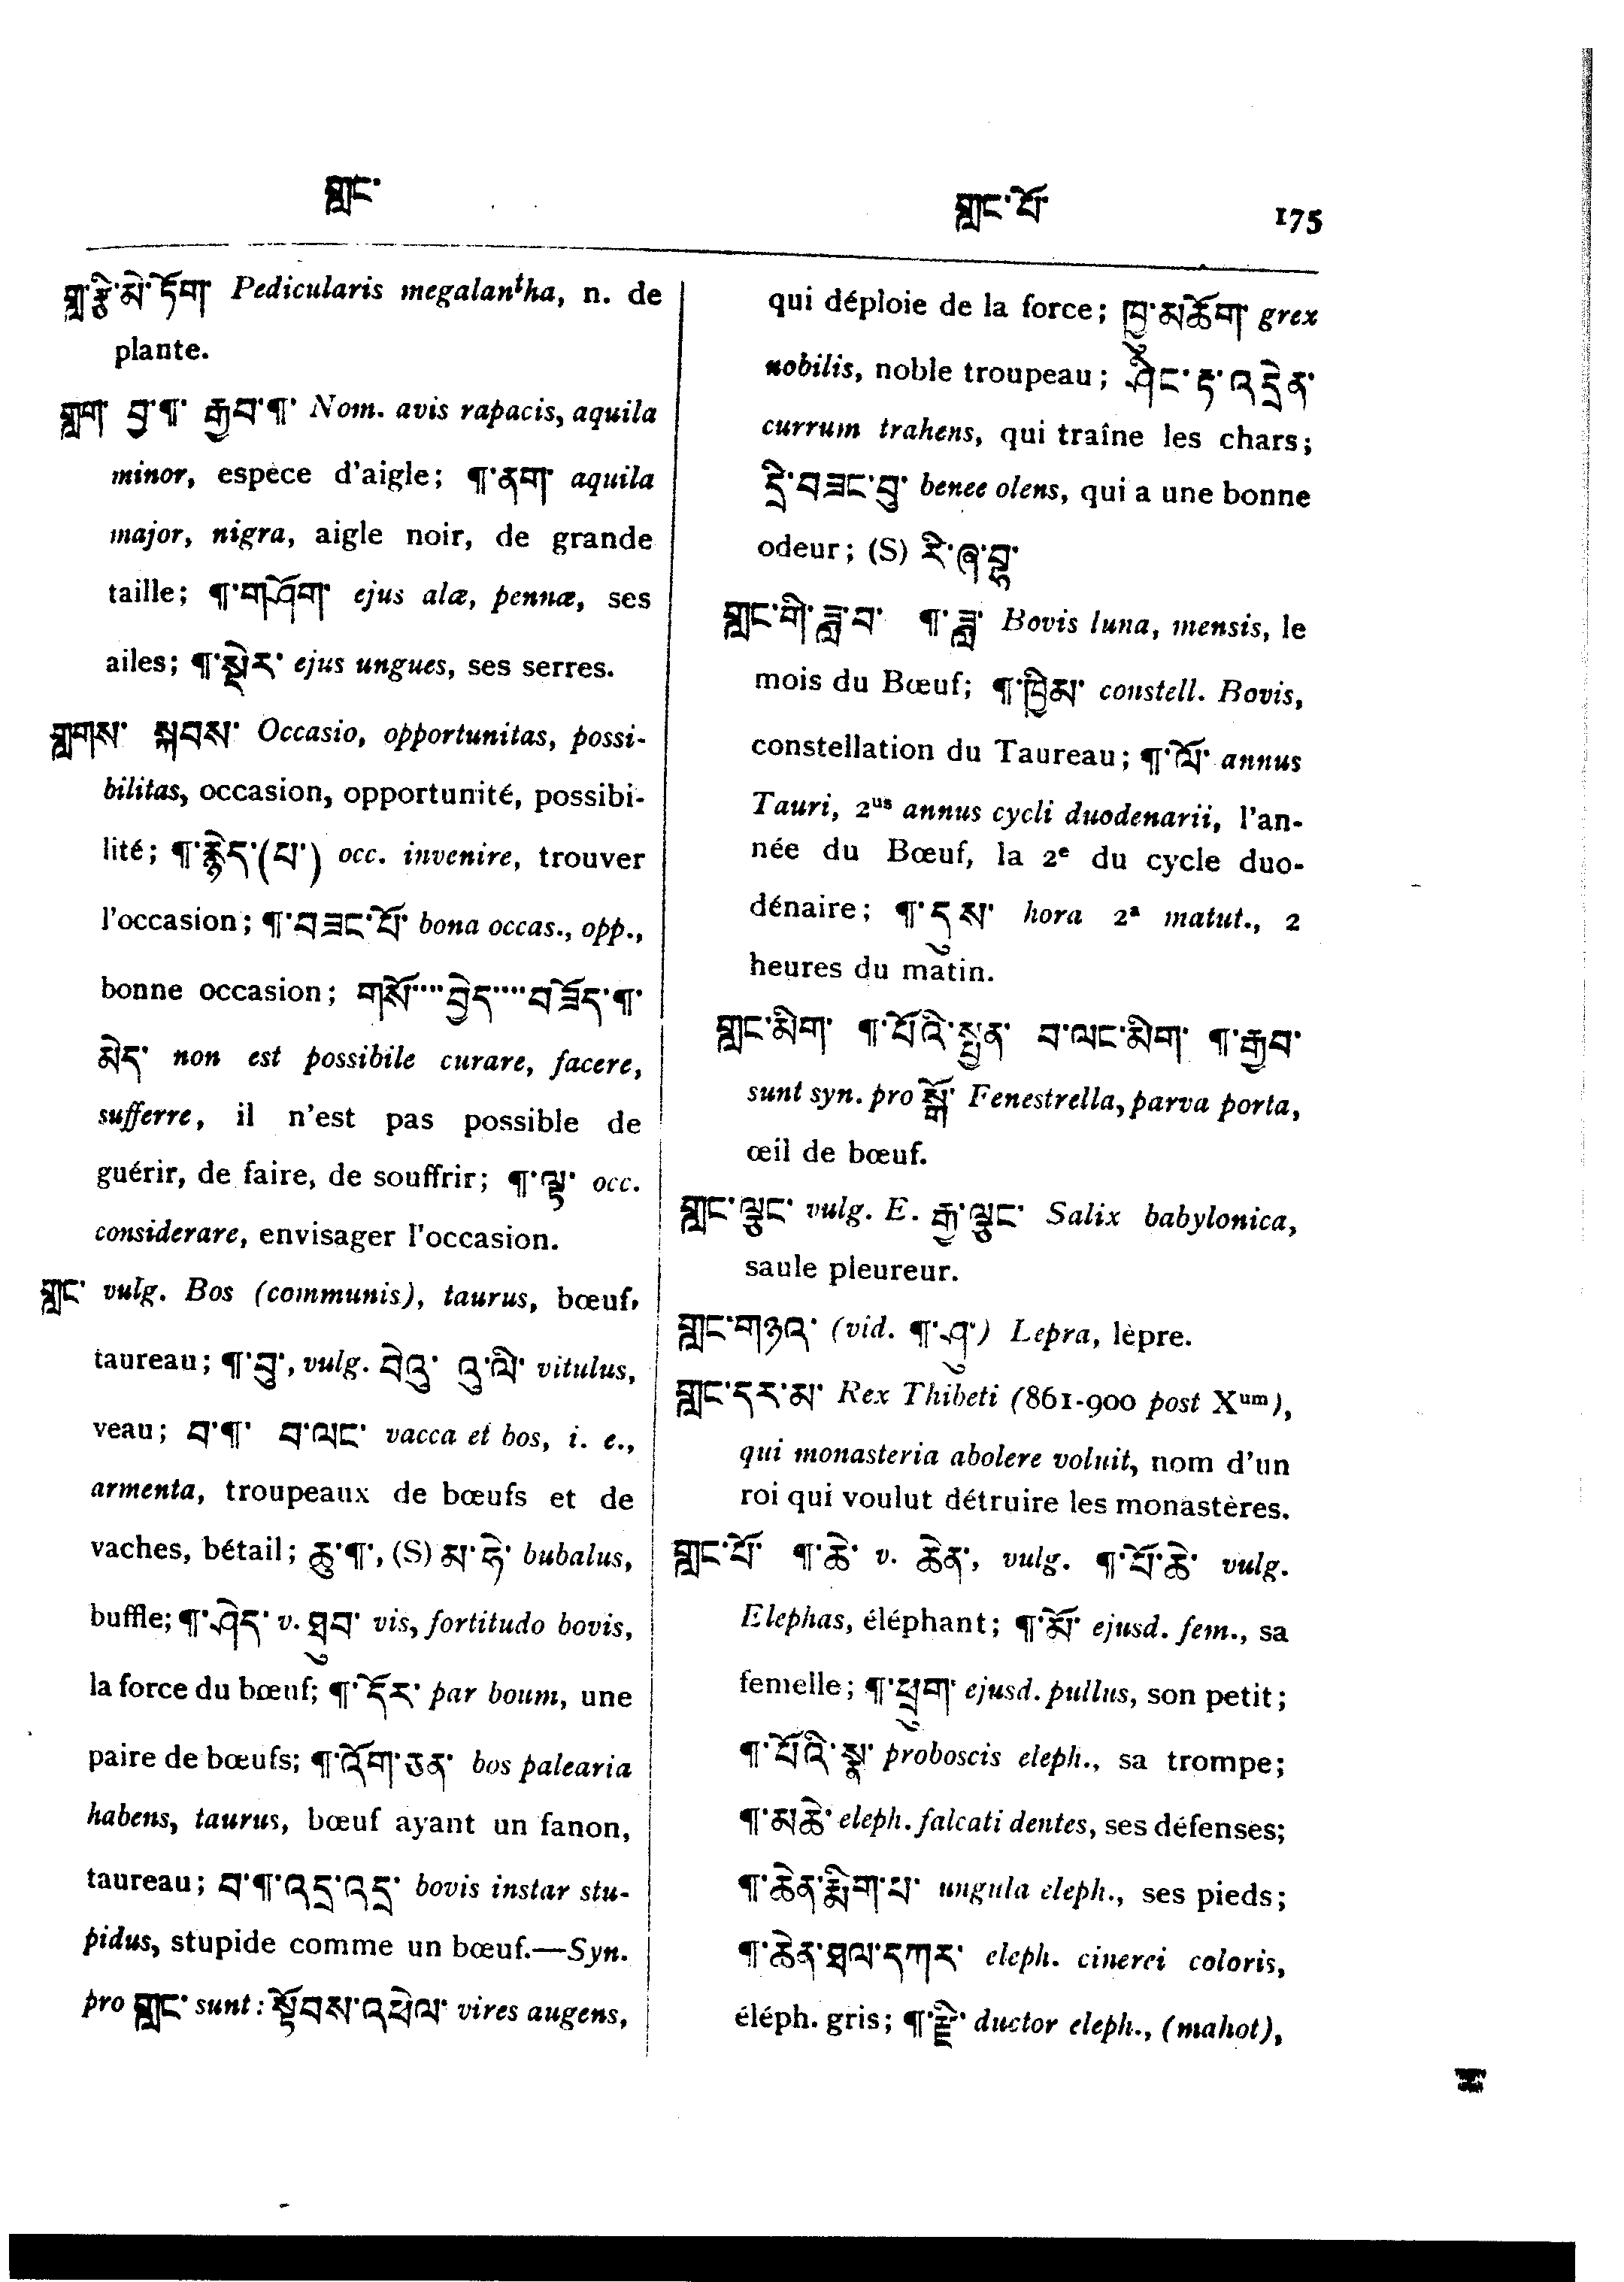 གླང་
གླང་པོ་ 175
གླ་རྩི་མེ་ཏོག་ Pedicularis megalantha, n. de
plante.
གླག་ བྱ་¶་ རྒྱབ་¶་ Nom. avis rapacis, aquila
minor, espèce d'aigle; ¶་ནག་ aquila
major, nigra, aigle noir, de grande
taille; ¶་གཤོག་ ejus alæ, pennæ, ses
ailes; ¶་སྡེར་ ejus ungues, ses serres.
གླགས་ སྐབས་ Occasio, opportunitas, possi-
bilitas, occasion, opportunité, possibi-
lité; ¶་རྙེད་(པ་) occ. invenire, trouver
l'occasion; ¶་བཟང་པོ་ bona occas., opp.,
bonne occasion; གསོ་་་་་བྱེད་་་་་བཟོད་¶་
མེད་ non est possibile curare, facere,
sufferre, il n'est pas possible de
guérir, de faire, de souffrir; ¶་ལྟ་ occ.
considerare, envisager l'occasion.
གླང་ vulg. Bos (communis), taurus, bœuf,
taureau; ¶་བུ་, vulg. བེའུ་ འུ་ལི་ vitulus,
veau; བ་¶་ བ་ལང་ vacca et bos, i. e.,
armenta, troupeaux de bœufs et de
vaches, bétail; ཆུ་¶་, (S) མ་ཧེ་ bubalus,
buffle; ¶་ཤེད་ v. ཐུབ་ vis, fortitudo bovis,
la force du bœuf; ¶་དོར་ par boum, une
paire de bœufs; ¶་འོག་ཅན་ bos palearia
habens, taurus, bœuf ayant un fanon,
taureau; བ་¶་འདྲ་འདྲ་ bovis instar stu-
pidus, stupide comme un bœuf.—Syn.
pro གླང་ sunt: སྟོབས་འཕེལ་ vires augens,
qui déploie de la force; ཁྱུ་མཆོག་ grex
nobilis, noble troupeau; ཤིང་ཏ་འདྲེན་
currum trahens, qui traîne les chars;
དྲི་བཟང་བུ་ benee olens, qui a une bonne
odeur; (S) རི་ཞ་བྷ་
གླང་གི་ཟླ་བ་ ¶་ཟླ་ Bovis luna, mensis, le
mois du Bœuf; ¶་ཁྱིམ་ constell. Bovis,
constellation du Taureau; ¶་ལོ་ annus
Tauri, 2us annus cycli duodenarii, l'an-
née du Bœuf, la 2e du cycle duo-
dénaire; ¶་དུས་ hora 2a matut., 2
heures du matin.
གླང་མིག་ ¶་པོའི་སྤྱན་ བ་ལང་མིག་ ¶་རྒྱབ་
sunt syn. pro སྒོ་ Fenestrella, parva porta,
œil de bœuf.
གླང་ལྕང་ vulg. E. རྒྱ་ལྕང་ Salix babylonica,
saule pleureur.
གླང་གཉའ་ (vid. ¶་ཤུ་) Lepra, lèpre.
གླང་དར་མ་ Rex Thibeti (861-900 post Xum),
qui monasteria abolere voluit, nom d'un
roi qui voulut détruire les monastères.
གླང་པོ་ ¶་ཆེ་ v. ཆེན་, vulg. ¶་པོ་ཆེ་ vulg.
Elephas, éléphant; ¶་མོ་ ejusd. fem., sa
femelle; ¶་ཕྲུག་ ejusd. pullus, son petit;
¶་པོའི་སྣ་ proboscis eleph., sa trompe;
¶་མཆེ་ eleph. falcati dentes, ses défenses;
¶་ཆེན་རྨིག་པ་ ungula eleph., ses pieds;
¶་ཆེན་ཐལ་དཀར་ eleph. cinerei coloris,
éléph. gris; ¶་རྫི་ ductor eleph., (mahot),